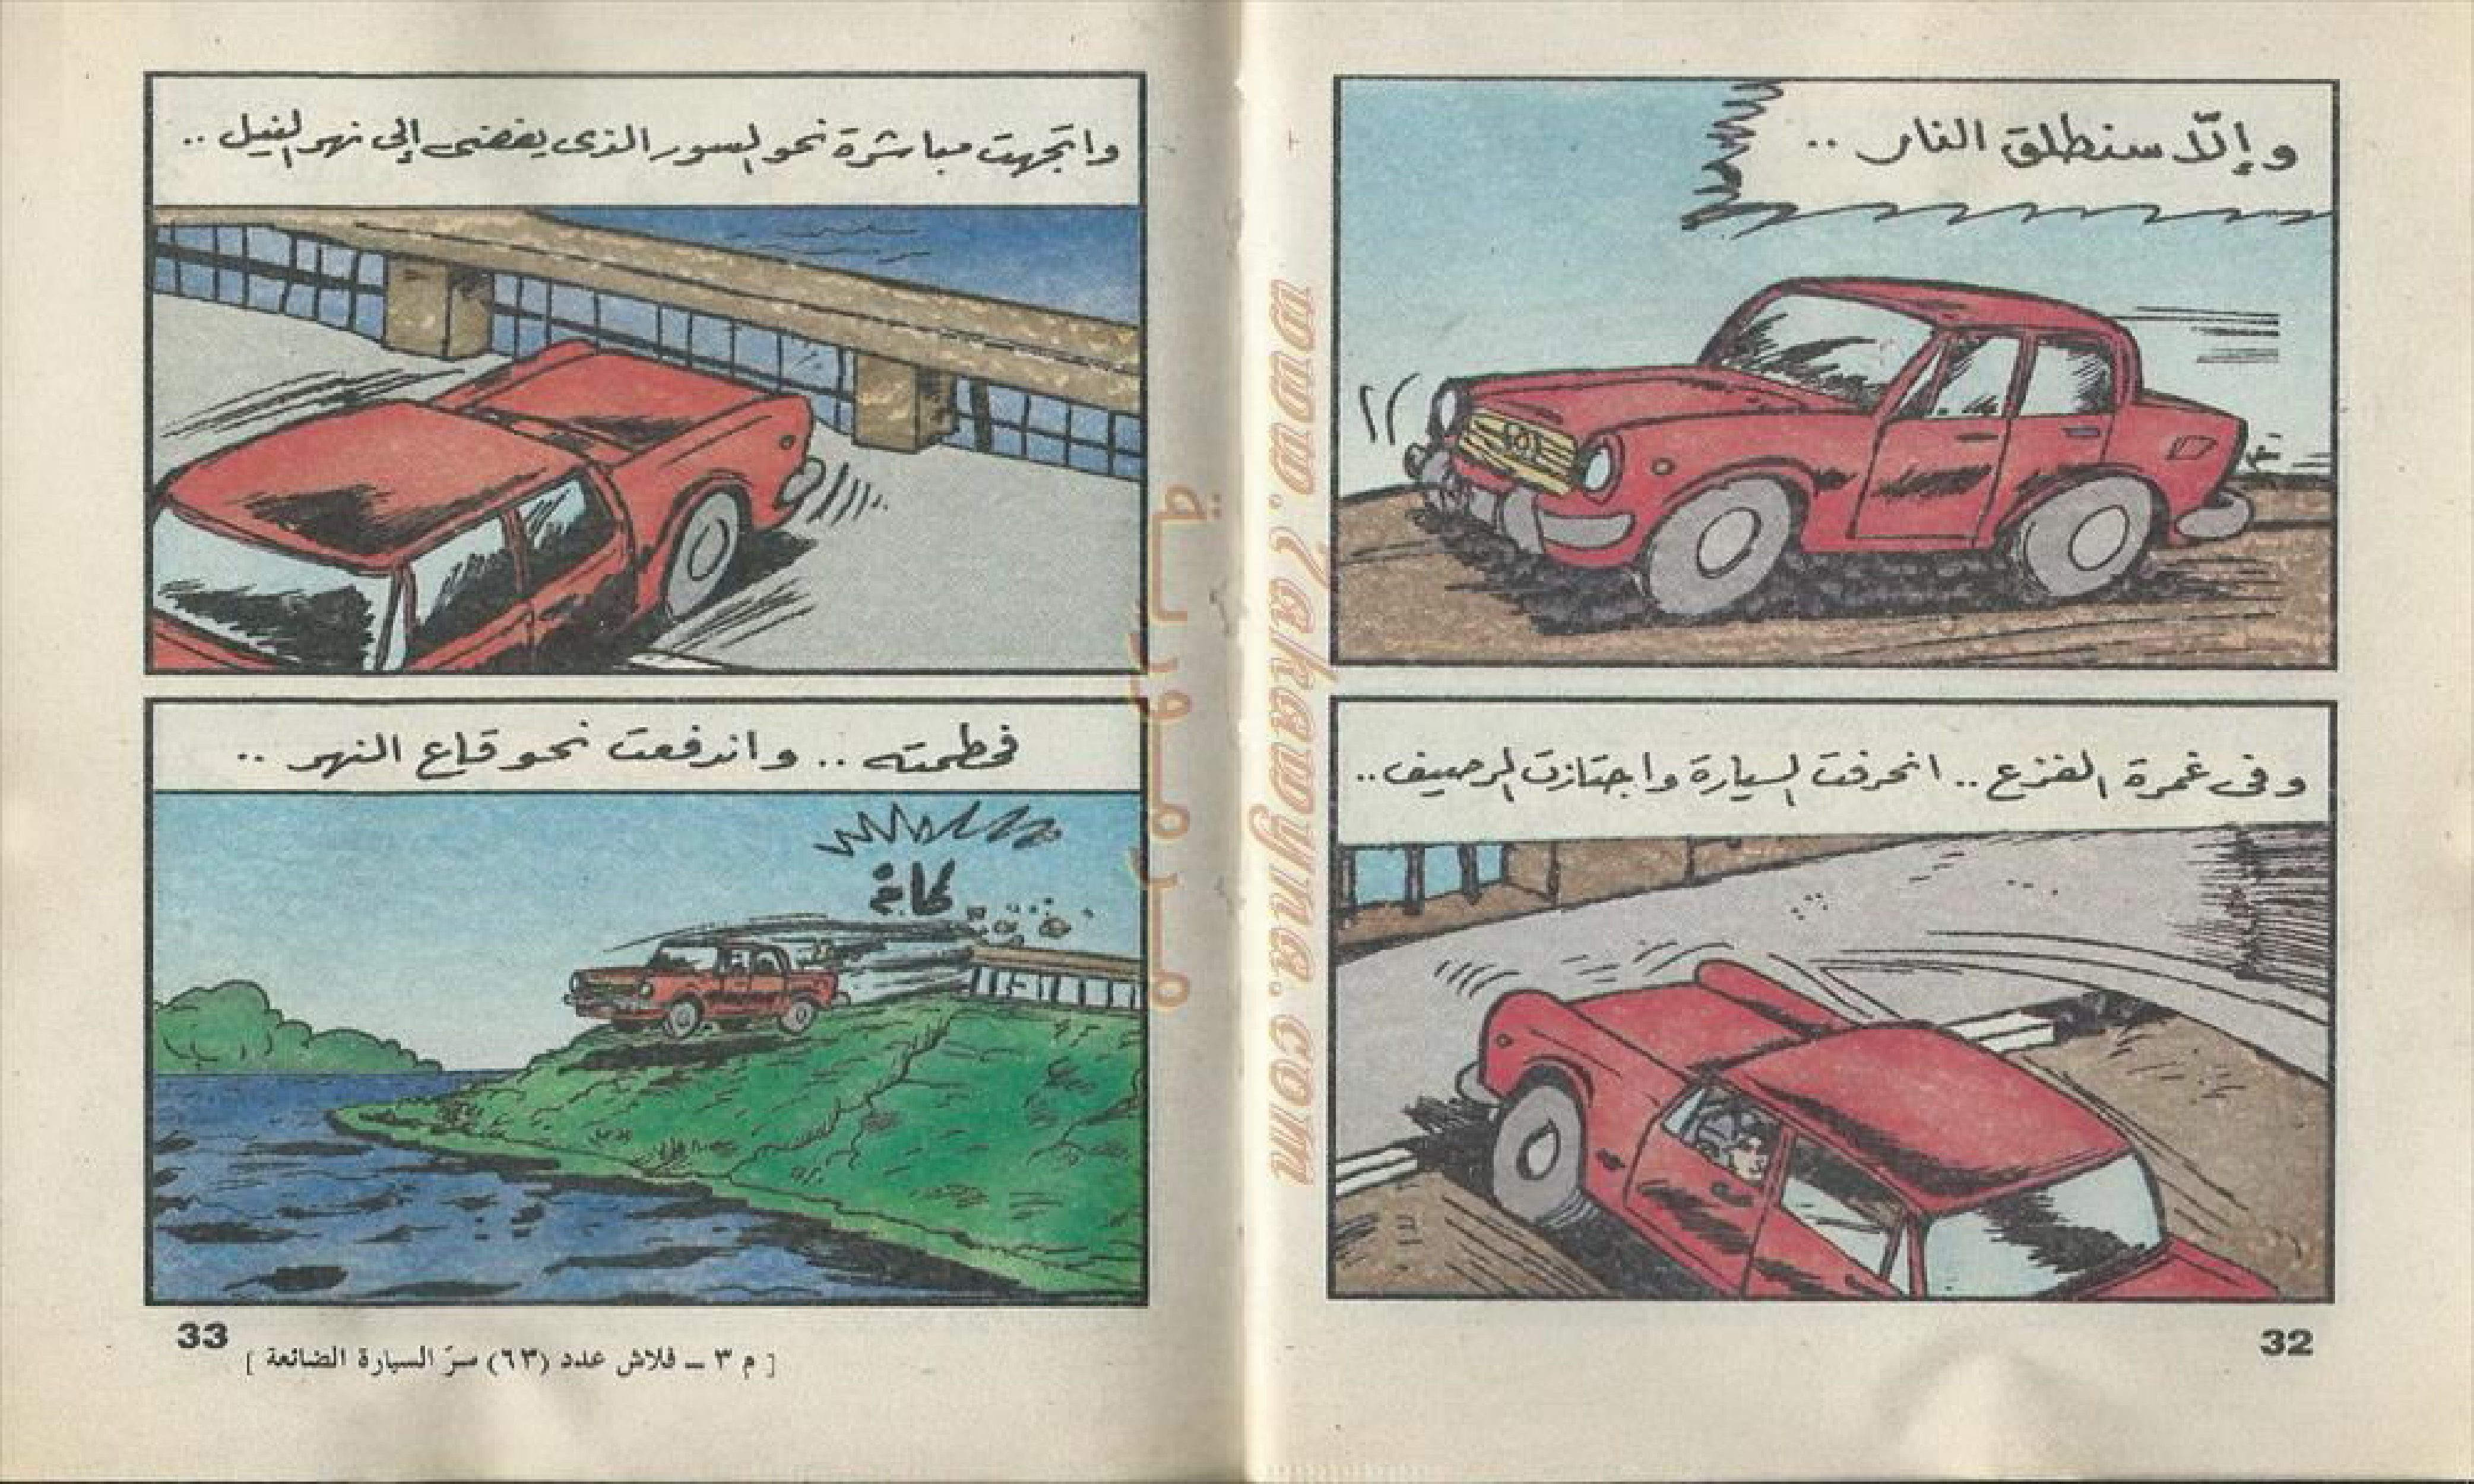 وإلّا سنطلق النار ..
وفى غمرة الفزع .. انحرفت السيارة واجتازت الرصيف ..
32
واتجهت مباشرة نحو السور الذى يفضى إلى نهر النيل ..
فحطمته .. واندفعت نحو قاع النهر ..
33
[ م ٣ ــ فلاش عدد (٦٣) سرّ السيارة الضائعة ]
www.7akawyna.com